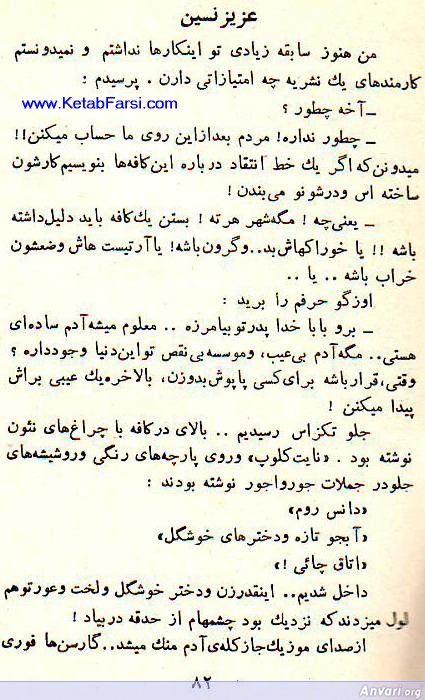 عزیز نسین
من هنوز سابقه زیادی تو اینکارها نداشتم و نمیدونستم
کارمندهای یك نشریه چه امتیازاتی دارن . پرسیدم :
www.KetabFarsi.com
ـ آخه چطور ؟
ـ چطور نداره! مردم بعدازاین روی ما حساب میکنن!!
میدونن که اگر یك خط انتقاد درباره این کافه‌ها بنویسیم کارشون
ساخته اس ودرشونو می‌بندن !
ـ یعنی‌چه ! مگه‌شهر هرته ! بستن یك کافه باید دلیل‌داشته
باشه !! یا خوراکهاش‌بد.. وگرون‌باشه! یاآرتیست هاش وضعشون
خراب باشه .. یا ..
اوزگو حرفم را برید :
ـ برو بابا خدا پدرتو بیامرزه .. معلوم میشه آدم ساده‌ای
هستی.. مگه آدم بی‌عیب، وموسسه بی‌نقص تواین دنیا وجودداره ؟
وقتی، قرارباشه برای‌کسی پاپوش‌بدوزن، بالاخره‌یك عیبی براش
پیدا میکنن !
جلو تکزاس رسیدیم .. بالای در کافه با چراغ‌های نئون
نوشته بود . «نایت‌کلوپ» وروی پارچه‌های رنگی وروشیشه‌های
جلودر جملات جورواجور نوشته بودند :
«دانس روم»
«آبجو تازه ودخترهای خوشگل»
«اتاق چائی !»
داخل شدیم.. اینقدرزن ودختر خوشگل ولخت وعورتوهم
لول میزدند که نزدیك بود چشمهام از حدقه دربیاد !
ازصدای موزیك‌جازکله‌ی‌آدم منك میشد.. گارسن‌ها فوری
۸۲
Anvari.org